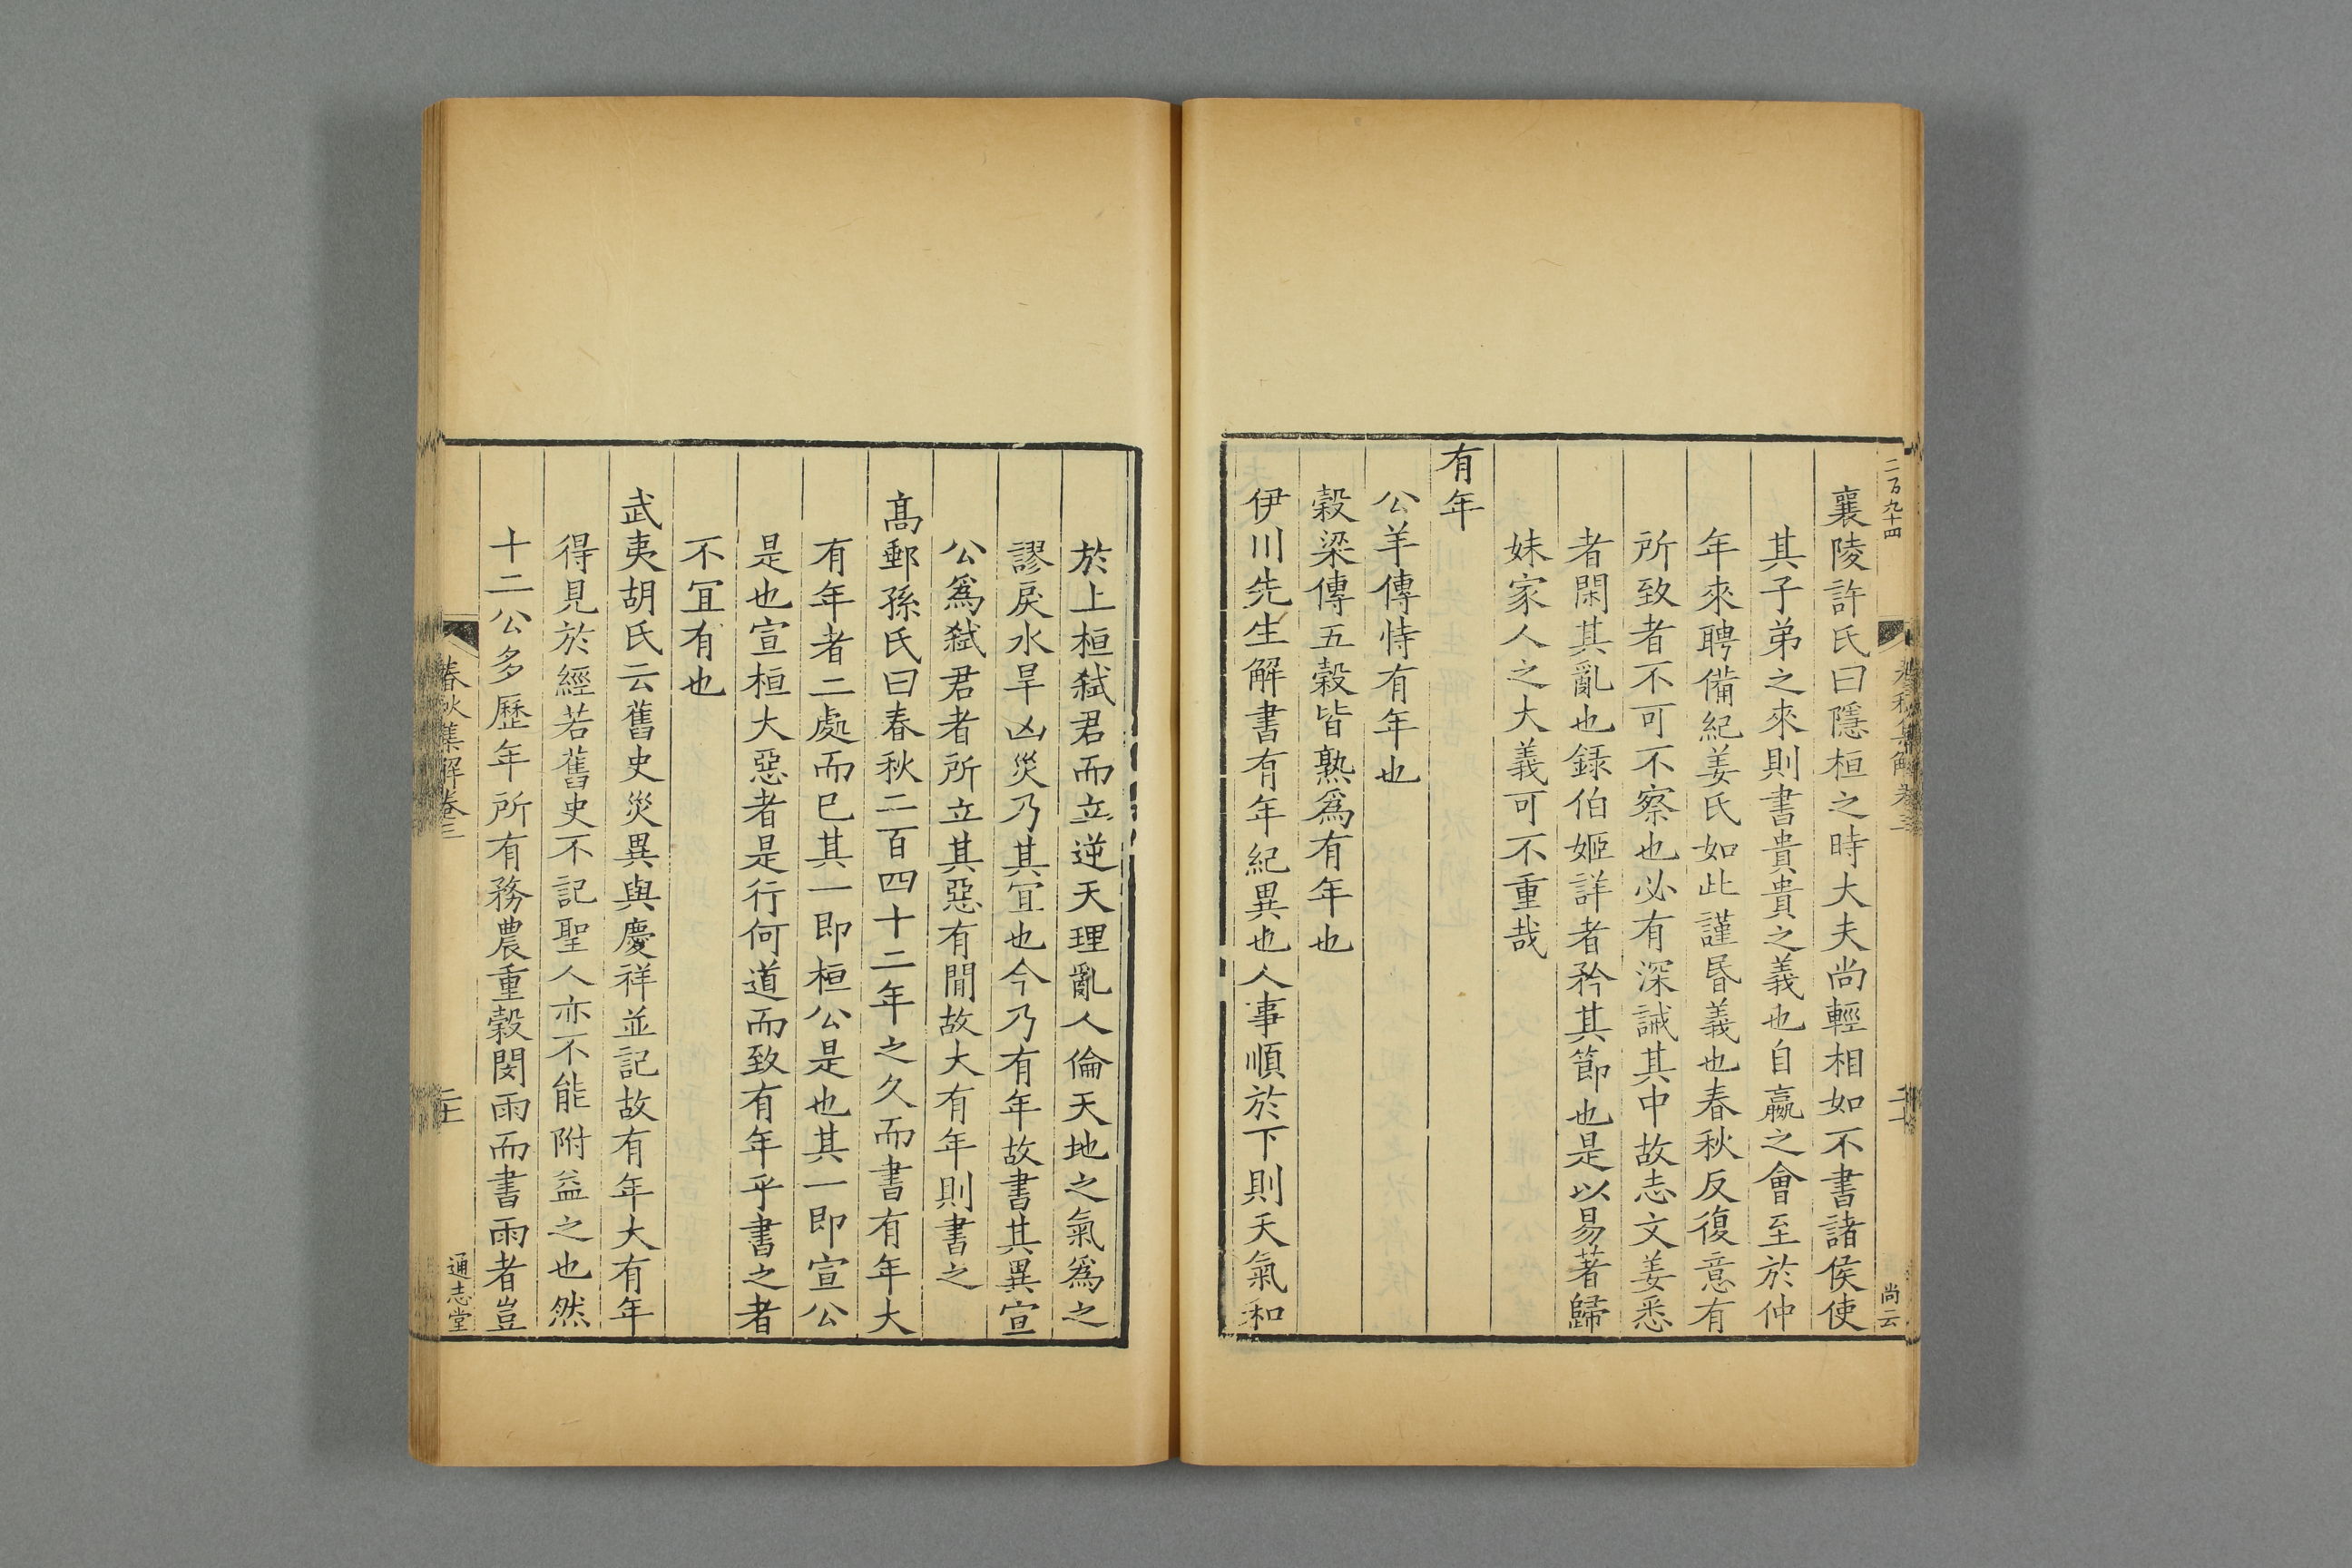 二百九十四
春秋集解卷三
尚云
襄陵許氏曰隱桓之時大夫尚輕相如不書諸侯使
其子弟之來則書貴貴之義也自嬴之會至於仲
年來聘備紀姜氏如此謹昏義也春秋反復意有
所致者不可不察也必有深誡其中故志文姜悉
者閑其亂也録伯姬詳者矜其節也是以易著歸
妹家人之大義可不重哉
有年
公羊傳恃有年也
穀梁傳五穀皆熟爲有年也
伊川先生解書有年紀異也人事順於下則天氣和
於上桓弑君而立逆天理亂人倫天地之氣爲之
謬戾水旱凶災乃其冝也今乃有年故書其異宣
公爲弑君者所立其惡有閒故大有年則書之
髙郵孫氏曰春秋二百四十二年之久而書有年大
有年者二處而已其一即桓公是也其一即宣公
是也宣桓大惡者是行何道而致有年乎書之者
不冝有也
武夷胡氏云舊史災異與慶祥並記故有年大有年
得見於經若舊史不記聖人亦不能附益之也然
十二公多歷年所有務農重穀閔雨而書雨者豈
春秋集解卷三
通志堂